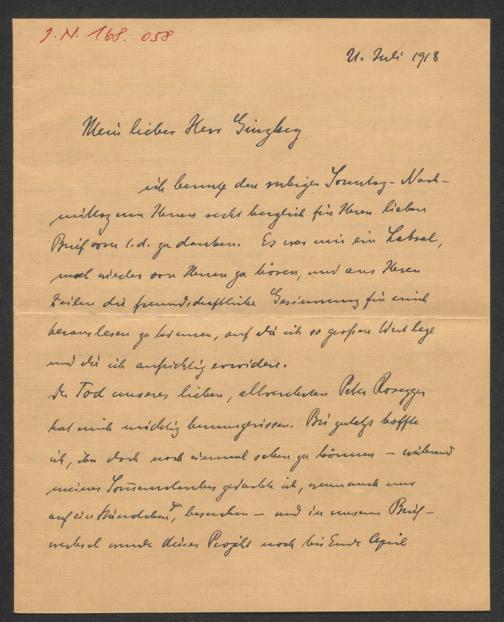 J.N. 168.058
21. Juli 1918
Mein lieber Herr Ginzkey
ich benutze den ruhigen Sonntag-Nach-
mittag um Ihnen recht herzlich für Ihren lieben
Brief vom 1. d. zu danken. Es war mir ein Labsal,
mal wieder von Ihnen zu hören, und aus Ihren
Zeilen die freundschaftliche Gesinnung für mich
herauslesen zu können, auf die ich so großen Wert lege
und die ich aufrichtig erwidere.
Der Tod unseres lieben, allverehrten Peter Rosegger
hat mich mächtig Bis zuletzt hoffte
ich, ihn doch noch einmal sehen zu können – während
meines gedachte ich, wenn auch nur
auf ein Stündchen, zu besuchen – und in unserem Brief-
wechsel wurde dieses Projekt noch bis Ende April